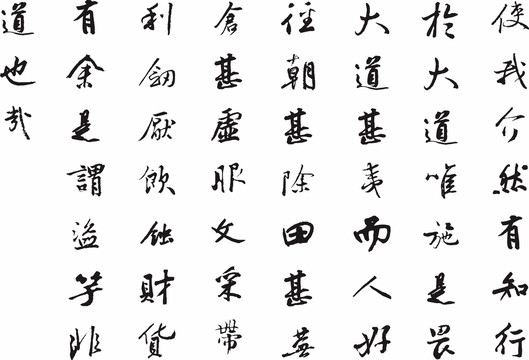 使我介然有知行
於大道唯施是畏
大道甚夷而人好
徑朝甚除田甚蕪
倉甚虛服文采帶
利劍厭飲食財貨
有余是謂盜竽非
道也哉